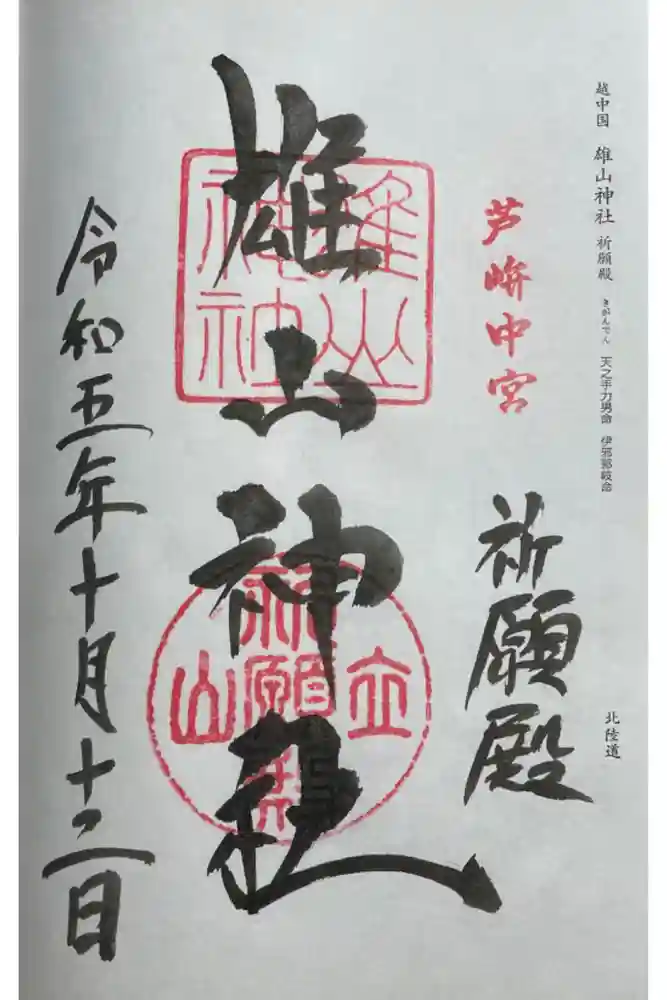 越中国 雄山神社 祈願殿 きがんでん 天之手力男命 伊邪那岐命
北陸道
芦峅中宮
祈願殿
雄山神社
雄山神社
立山
祈願殿
令和五年十月十二日